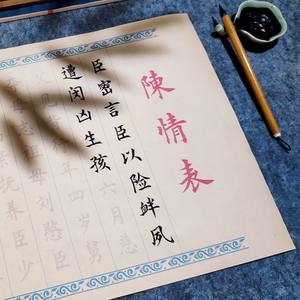 陳情表
臣密言臣以险衅夙
遭闵凶生孩六月慈
行年四岁舅
母志祖母刘愍臣
抚养臣少